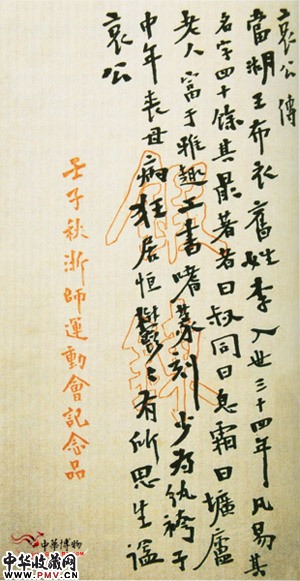 哀公傳
當湖王布衣舊姓李入世三十四年凡易其
名字四十餘其最著者曰叔同曰息霜曰壙廬
老人富于雅趣工書嗜篆刻少為紈袴子
中年喪母病狂居恒鬱〻有所思生謚
哀公
壬子秋浙師運動會記念品
中華博物
中华收藏网
WWW.PMV.CN